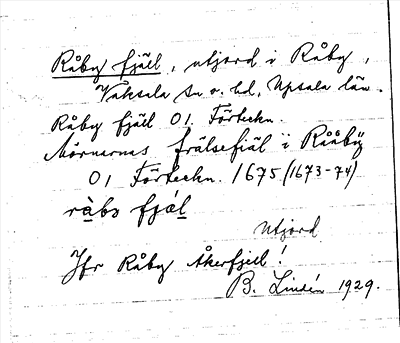 Råby fjäll, utjord i Råby,
Vaksala sn o. hd, Upsala län.
Råby fjell 01. Förteckn.
frälsefiäl i Rååbÿ
01 Förteckn. 1675 (1673-74)
ràbs fjàl
utjord
Jfr Råby Åkerfjell!
B. Lindén 1929.